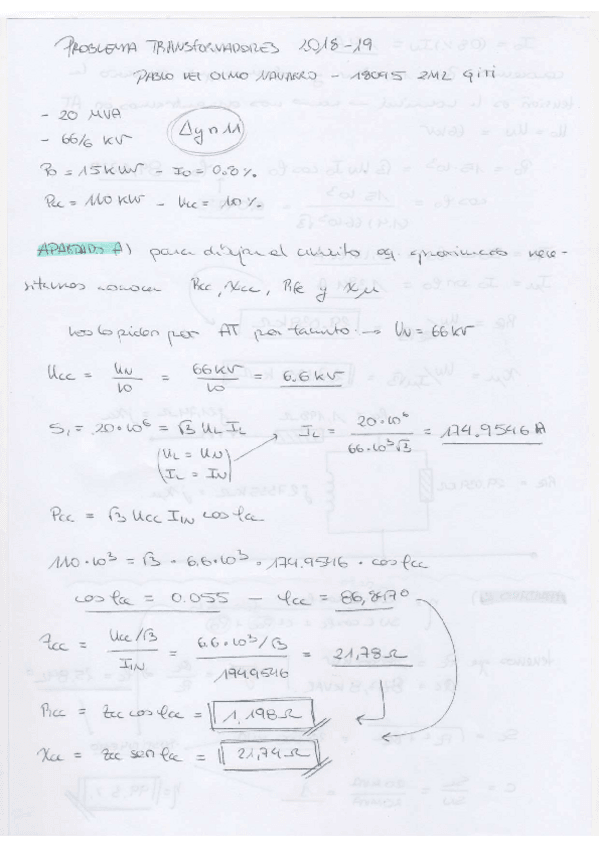 PROBLEMA TRANSFORMADORES 2018-19
PABLO DEL OLMO NAVARRO - 18095 2M2 GITI
- 20 MVA
- 66/6 KV
Dyn11
P0 = 15KW - I0 = 0.8%
Pcc = 110 KW - Ucc = 10%
APARTADO A) para dibujar el circuito eq aproximado nece-
sitamos conocer Rcc, Xcc, Rfe y Xμ
nos lo piden por AT por tanto → UN = 66 KV
Ucc = UN/10 = 66KV/10 = 6.6 KV
S1 = 20·10^6 = √3 UL IL → IL = 20·10^6/66·10^3√3 = 174.9546 A
(UL = UN
IL = IN)
Pcc = √3 Ucc I1N cos φcc
110·10^3 = √3 · 6.6·10^3 · 174.9546 · cos φcc
cos φcc = 0.055 - φcc = 86,847º
Zcc = Ucc/√3 / I1N = 6.6·10^3/√3 / 174.9546 = 21,78 Ω
Rcc = Zcc cos φcc = 1,198 Ω
Xcc = Zcc sen φcc = 21,74 Ω